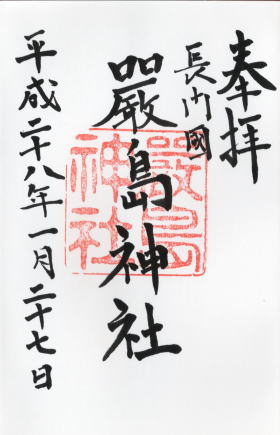 奉拝
長門國
嚴島神社
嚴島
神社
平成二十八年一月二十七日